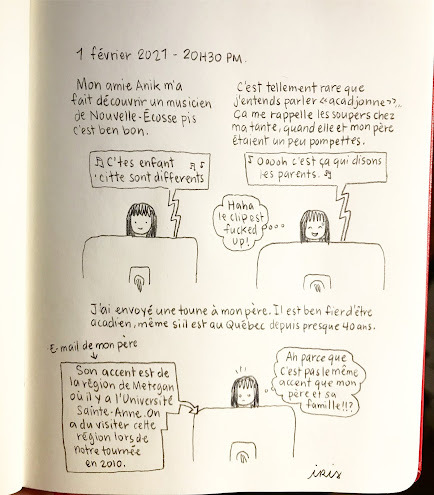 1 février 2021 - 20H30 PM.
Mon amie Anik m'a
fait découvrir un musicien
de Nouvelle-Écosse pis
c'est ben bon.
C'est tellement rare que
j'entends parler "acadjonne"...
Ça me rappelle les soupers chez
ma tante, quand elle et mon père
étaient un peu pompettes.
♫ C'tes enfant ♪ ♪
'citte sont différents
♪ Ooooh c'est ça qui disons
les parents. ♫
Haha
le clip est
fucked
up!
J'ai envoyé une toune à mon père. Il est ben fier d'être
acadien, même si il est au Québec depuis presque 40 ans.
E-mail de mon père
Son accent est de
la région de Metegan
où il y a l'Université
Sainte-Anne. On
a du visiter cette
région lors de
notre tournée
en 2010.
Ah parce que
c'est pas le même
accent que mon
père et sa
famille!!?
iris